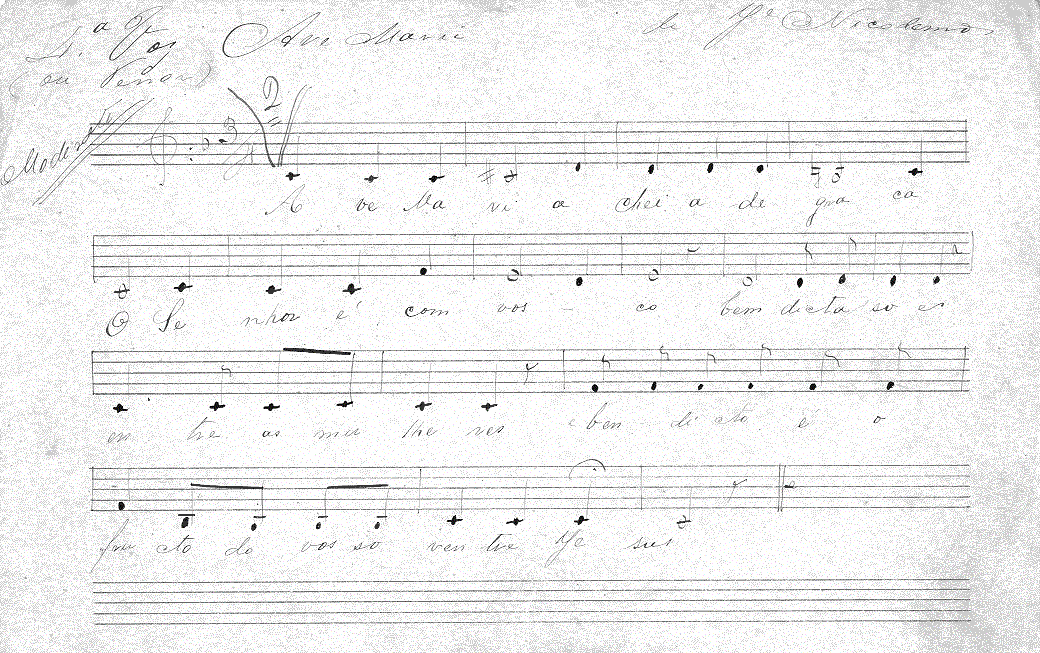 Ave Maria de Je Nicolemos
(ou Tenor)
Moderato
2
3
A ve Ma ri a chei a de gra ca
O Se nhor é com vos - co bem dicta so es
en tre as mu lhe res e ben di cto é o
fru cto do vos so ven tre Je sus